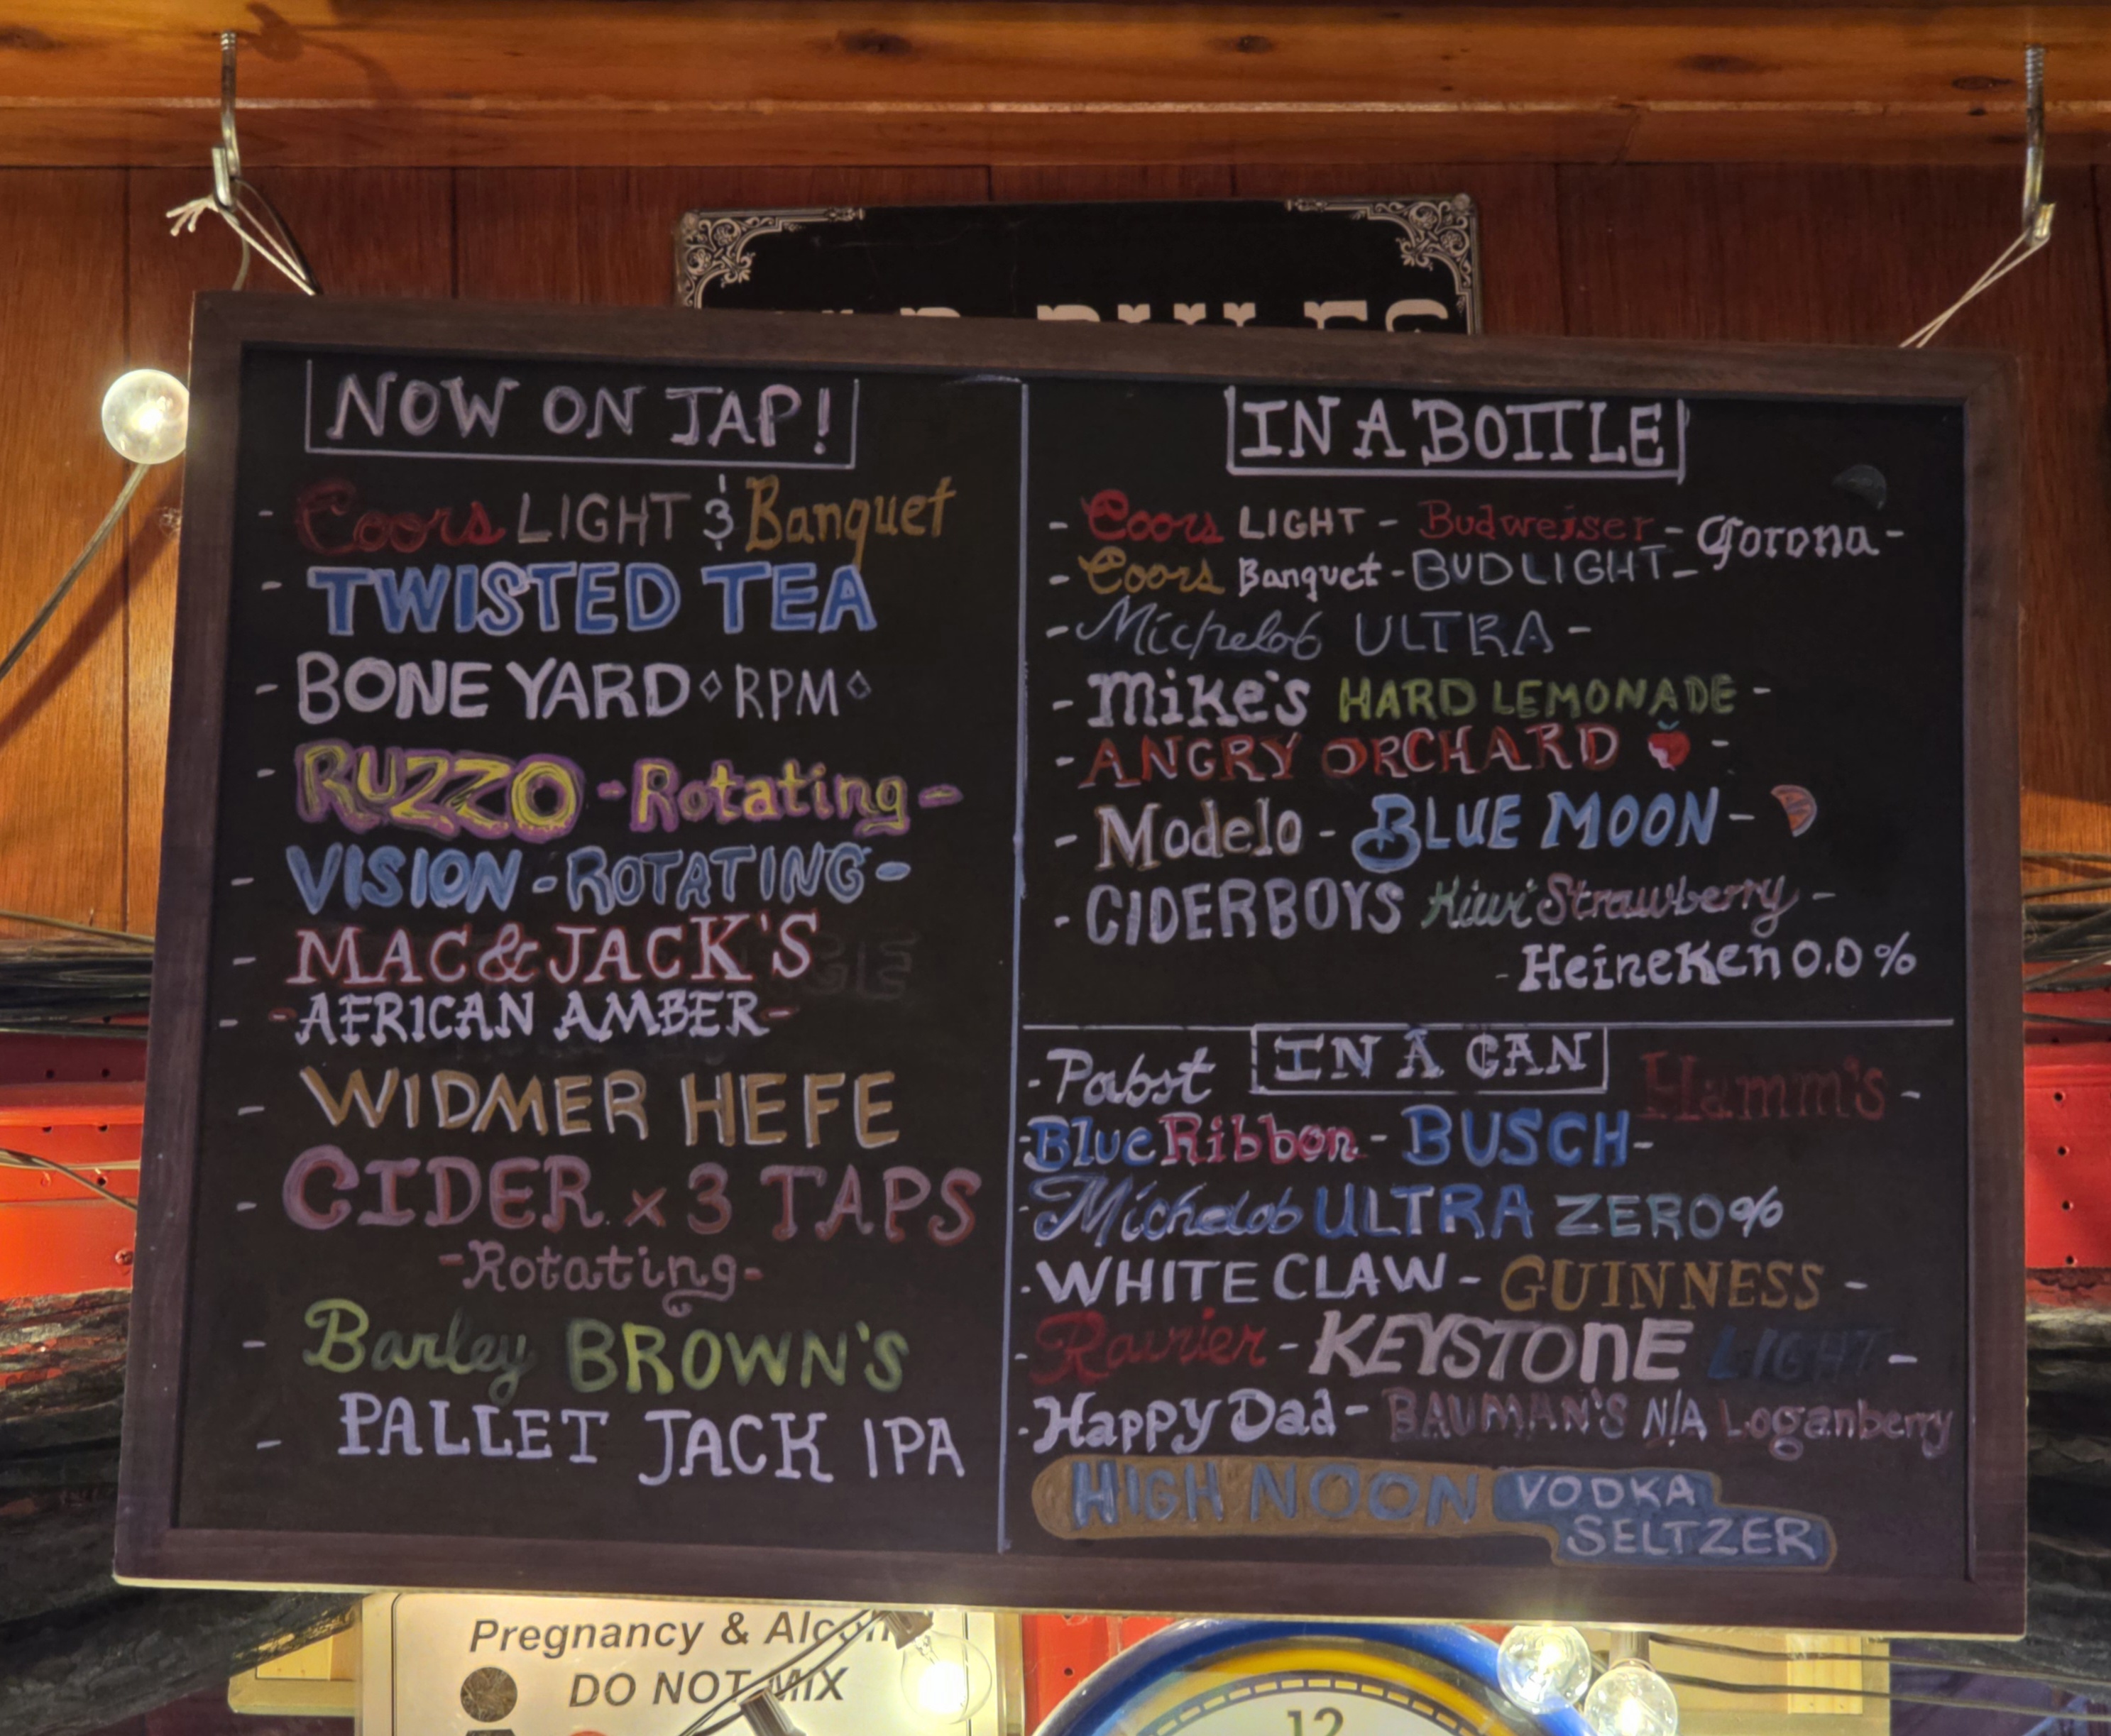 NOW ON TAP!
- Coors LIGHT & Banquet
- TWISTED TEA
- BONE YARD ◇ RPM ◇
- RUZZO - Rotating -
- VISION - ROTATING -
- MAC & JACK'S
- - AFRICAN AMBER -
- WIDMER HEFE
- CIDER x 3 TAPS
- Rotating -
- Barley BROWN'S
- PALLET JACK IPA
IN A BOTTLE
- Coors LIGHT - Budweiser - Corona -
- Coors Banquet - BUD LIGHT -
- Michelob ULTRA -
- Mike's HARD LEMONADE -
- ANGRY ORCHARD -
- Modelo - BLUE MOON -
- CIDERBOYS Kiwi Strawberry -
- Heineken 0.0%
IN A CAN
- Pabst Hamm's -
- Blue Ribbon - BUSCH -
- Michelob ULTRA ZERO%
- WHITE CLAW - GUINNESS -
- Rainier - KEYSTONE LIGHT -
- Happy Dad - BAUMAN'S N/A Loganberry
HIGH NOON VODKA
SELTZER
Pregnancy &
DO NOT MIX
12